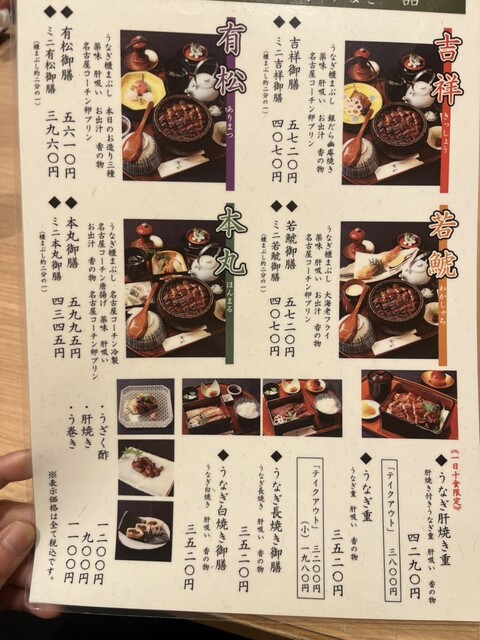 品
吉祥
きっしょう
◆吉祥御膳 五七二〇円
◆ミニ吉祥御膳 四〇七〇円
(櫃まぶし約二分の一)
うなぎ櫃まぶし 銀だら幽庵焼き
薬味 肝吸い お出汁 香の物
名古屋コーチン卵プリン
有松
ありまつ
◆有松御膳 五六一〇円
◆ミニ有松御膳 三九六〇円
(櫃まぶし約二分の一)
うなぎ櫃まぶし 本日のお造り三種
薬味 肝吸い お出汁 香の物
名古屋コーチン卵プリン
若鯱
わかしゃち
◆若鯱御膳 五七二〇円
◆ミニ若鯱御膳 四〇七〇円
(櫃まぶし約二分の一)
うなぎ櫃まぶし 大海老フライ
薬味 肝吸い お出汁 香の物
名古屋コーチン卵プリン
本丸
ほんまる
◆本丸御膳 五九九五円
◆ミニ本丸御膳 四三四五円
(櫃まぶし約二分の一)
うなぎ櫃まぶし 名古屋コーチン冷製
名古屋コーチン唐揚げ 薬味 肝吸い
お出汁 香の物 名古屋コーチン卵プリン
《一日十食限定》
◆うなぎ肝焼き重
肝焼き付きうなぎ重 肝吸い 香の物
四二九〇円
「テイクアウト」 三八〇〇円
◆うなぎ重
うなぎ重 肝吸い 香の物
三五二〇円
「テイクアウト」 三二〇〇円
(小) 一九八〇円
◆うなぎ長焼き御膳
うなぎ長焼き 肝吸い 香の物
三五二〇円
◆うなぎ白焼き御膳
うなぎ白焼き 肝吸い 香の物
三五二〇円
・うざく酢 一二〇〇円
・肝焼き 九〇〇円
・う巻き 一一〇〇円
※表示価格は全て税込です。